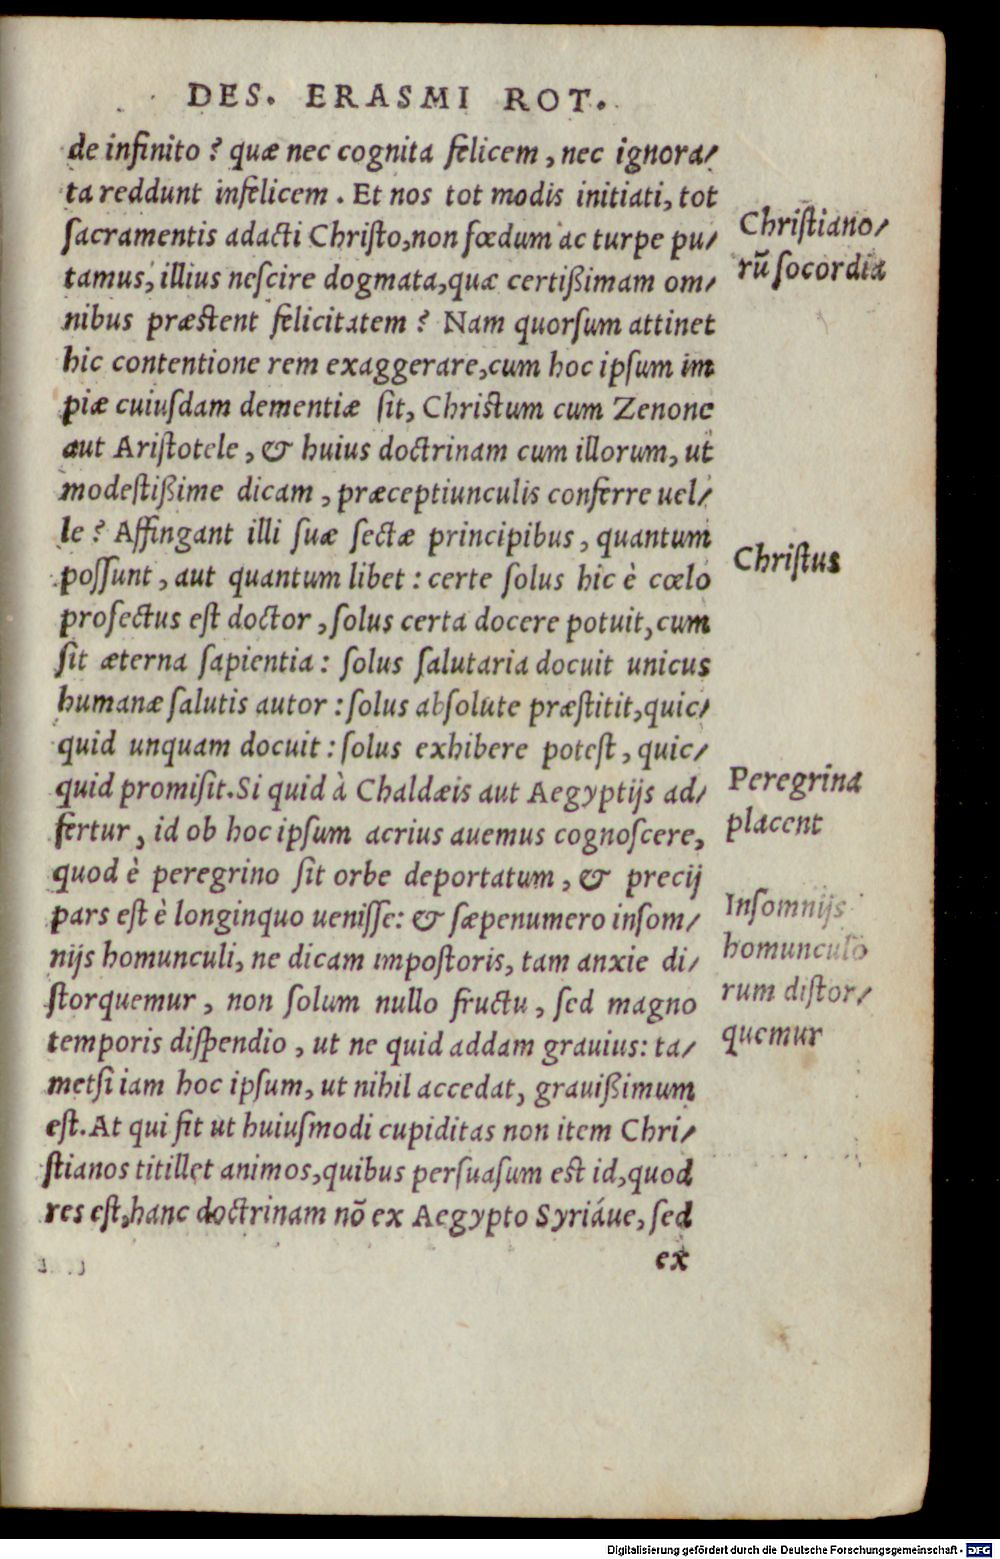 DES. ERASMI ROT.
de infinito? quæ nec cognita felicem, nec ignora/
ta reddunt infelicem. Et nos tot modis initiati, tot
ſacramentis adacti Chriſto, non fœdum ac turpe pu/
tamus, illius neſcire dogmata, quæ certißimam om/
nibus præstent felicitatem? Nam quorſum attinet
hic contentione rem exaggerare, cum hoc ipſum im
piæ cuiuſdam dementiæ ſit, Christum cum Zenone
aut Ariſtotele, & huius doctrinam cum illorum, ut
modeſtißime dicam, præceptiunculis conferre uel/
le? Affingant illi ſuæ ſectæ principibus, quantum
poſſunt, aut quantum libet: certe ſolus hic è cœlo
profectus eſt doctor, ſolus certa docere potuit, cum
ſit æterna ſapientia: ſolus ſalutaria docuit unicus
humanæ ſalutis autor: ſolus abſolute præſtitit, quic/
quid unquam docuit: ſolus exhibere poteſt, quic/
quid promiſit. Si quid à Chaldæis aut Aegyptijs ad/
fertur, id ob hoc ipſum acrius auemus cognoſcere,
quod è peregrino ſit orbe deportatum, & precij
pars eſt è longinquo ueniſſe: & ſæpenumero inſom/
nijs homunculi, ne dicam impoſtoris, tam anxie di/
ſtorquemur, non ſolum nullo fructu, ſed magno
temporis diſpendio, ut ne quid addam grauius: ta/
metſi iam hoc ipſum, ut nihil accedat, grauißimum
eſt. At qui fit ut huiuſmodi cupiditas non item Chri/
ſtianos titillet animos, quibus perſuaſum est id, quod
res eſt, hanc doctrinam nō ex Aegypto Syriáue, ſed
ex
Chriſtiano/
rū ſocordia
Chriſtus
Peregrina
placent
Inſomnijs
homunculo
rum diſtor/
quemur
Digitalisierung gefördert durch die Deutsche Forschungsgemeinschaft - DFG